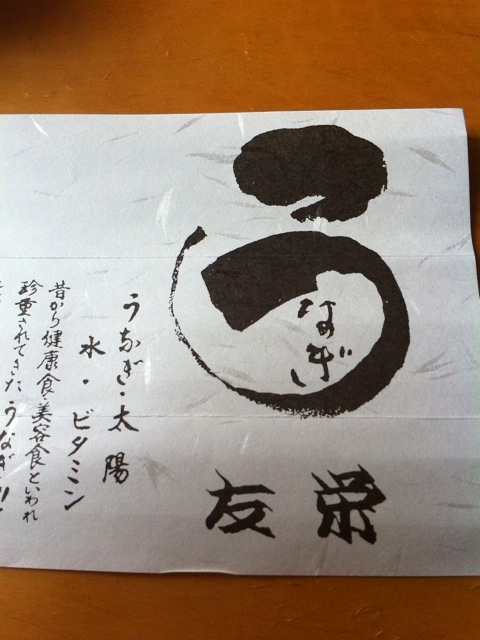 うなぎ
友栄
うなぎ・太陽
水・ビタミン
昔から健康食・美容食といわれ
珍重されてきたうなぎ!!